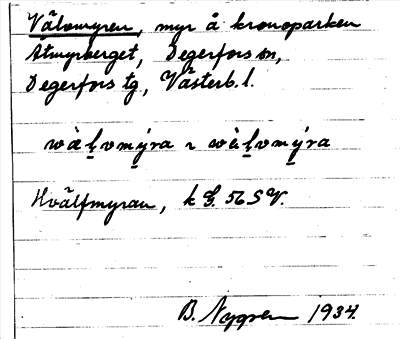 Välvmyren, myr å kronoparken
Åtmyrberget, Degerfors sn,
Degerfors tg, Västerb. l.
wàḷvmý̤ra ɿ wàḷvmý̤ra
Hvälfmyran, k G. 56 SV.
B. Nygren 1934.